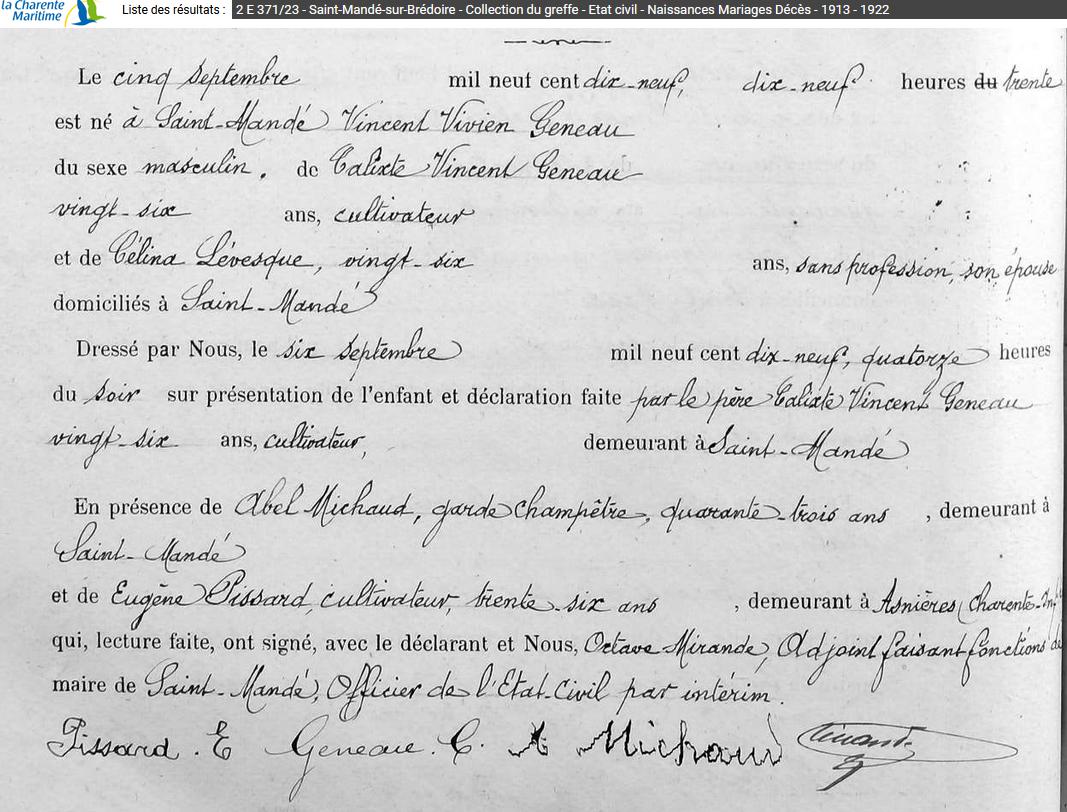 la Charente
Maritime
Liste des résultats : 2 E 371/23 - Saint-Mandé-sur-Brédoire - Collection du greffe - Etat civil - Naissances Mariages Décès - 1913 - 1922
Le cinq Septembre mil neuf cent dix-neuf, dix-neuf heures du trente
est né à Saint-Mandé Vincent Vivien Geneau
du sexe masculin, de Calixte Vincent Geneau
vingt-six ans, cultivateur
et de Célina Lévesque, vingt-six ans, sans profession, son épouse
domiciliés à Saint-Mandé
Dressé par Nous, le six Septembre mil neuf cent dix-neuf, quatorze heures
du soir sur présentation de l'enfant et déclaration faite par le père Calixte Vincent Geneau
vingt-six ans, cultivateur, demeurant à Saint-Mandé
En présence de Abel Michaud, garde champêtre, quarante-trois ans, demeurant à
Saint-Mandé
et de Eugène Pissard, cultivateur, trente-six ans, demeurant à Asnières (Charente-Inf
qui, lecture faite, ont signé, avec le déclarant et Nous, Octave Mirande, Adjoint faisant fonctions de
maire de Saint-Mandé, Officier de l'Etat-Civil par intérim.
Pissard. E Geneau. C. A Michaud